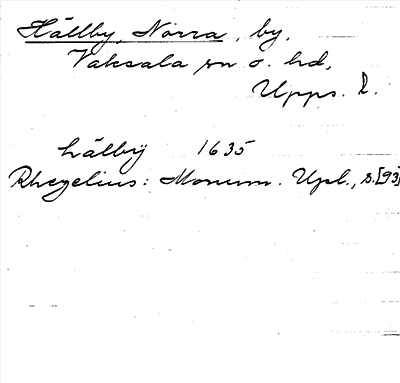 Hällby, Norra, by,
Vaksala sn o. hd,
Upps. l.
hälbÿ 1635
Rhezelius: Monum. Upl., s.[93]